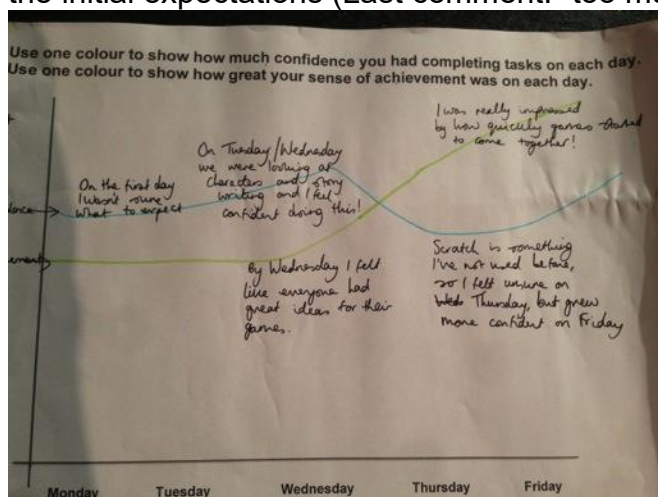 the initial expectations (Last comment:
Use one colour to show how much confidence you had completing tasks on each day.
Use one colour to show how great your sense of achievement was on each day.
I was really impressed
by how quickly games started
to come together!
On Tuesday/Wednesday
we were looking at
characters and story
writing and I feel
confident doing this!
On the first day
I wasn't sure
what to expect
By Wednesday I felt
like everyone had
great ideas for their
games.
Scratch is something
I've not used before,
so I felt unsure on
Thursday, but grew
more confident on Friday
Monday
Tuesday
Wednesday
Thursday
Friday